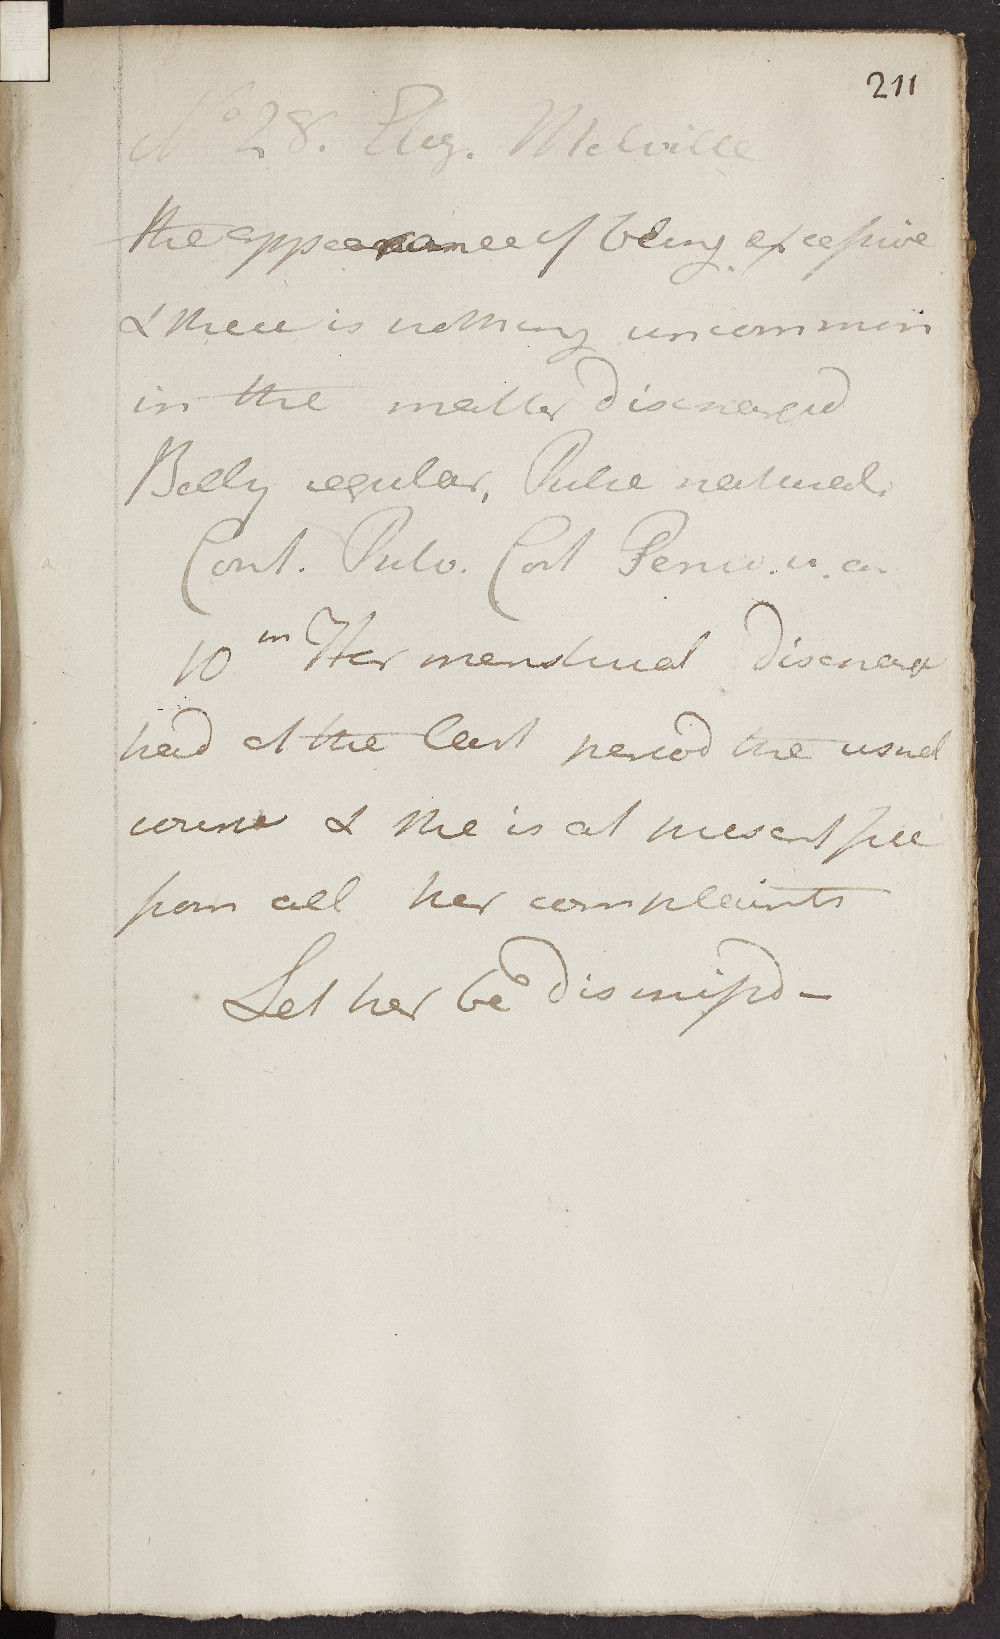 211
No 28. Eliz. Melville
the appearance of being excessive
& there is nothing uncommon
in the matter discharged
Belly regular, Pulse natural.
Cont. Pulv. Cort Peruv. u. a.
10th Her menstrual discharge
had at the last period the usual
course & she is at present free
from all her complaints
Let her be dismissd –